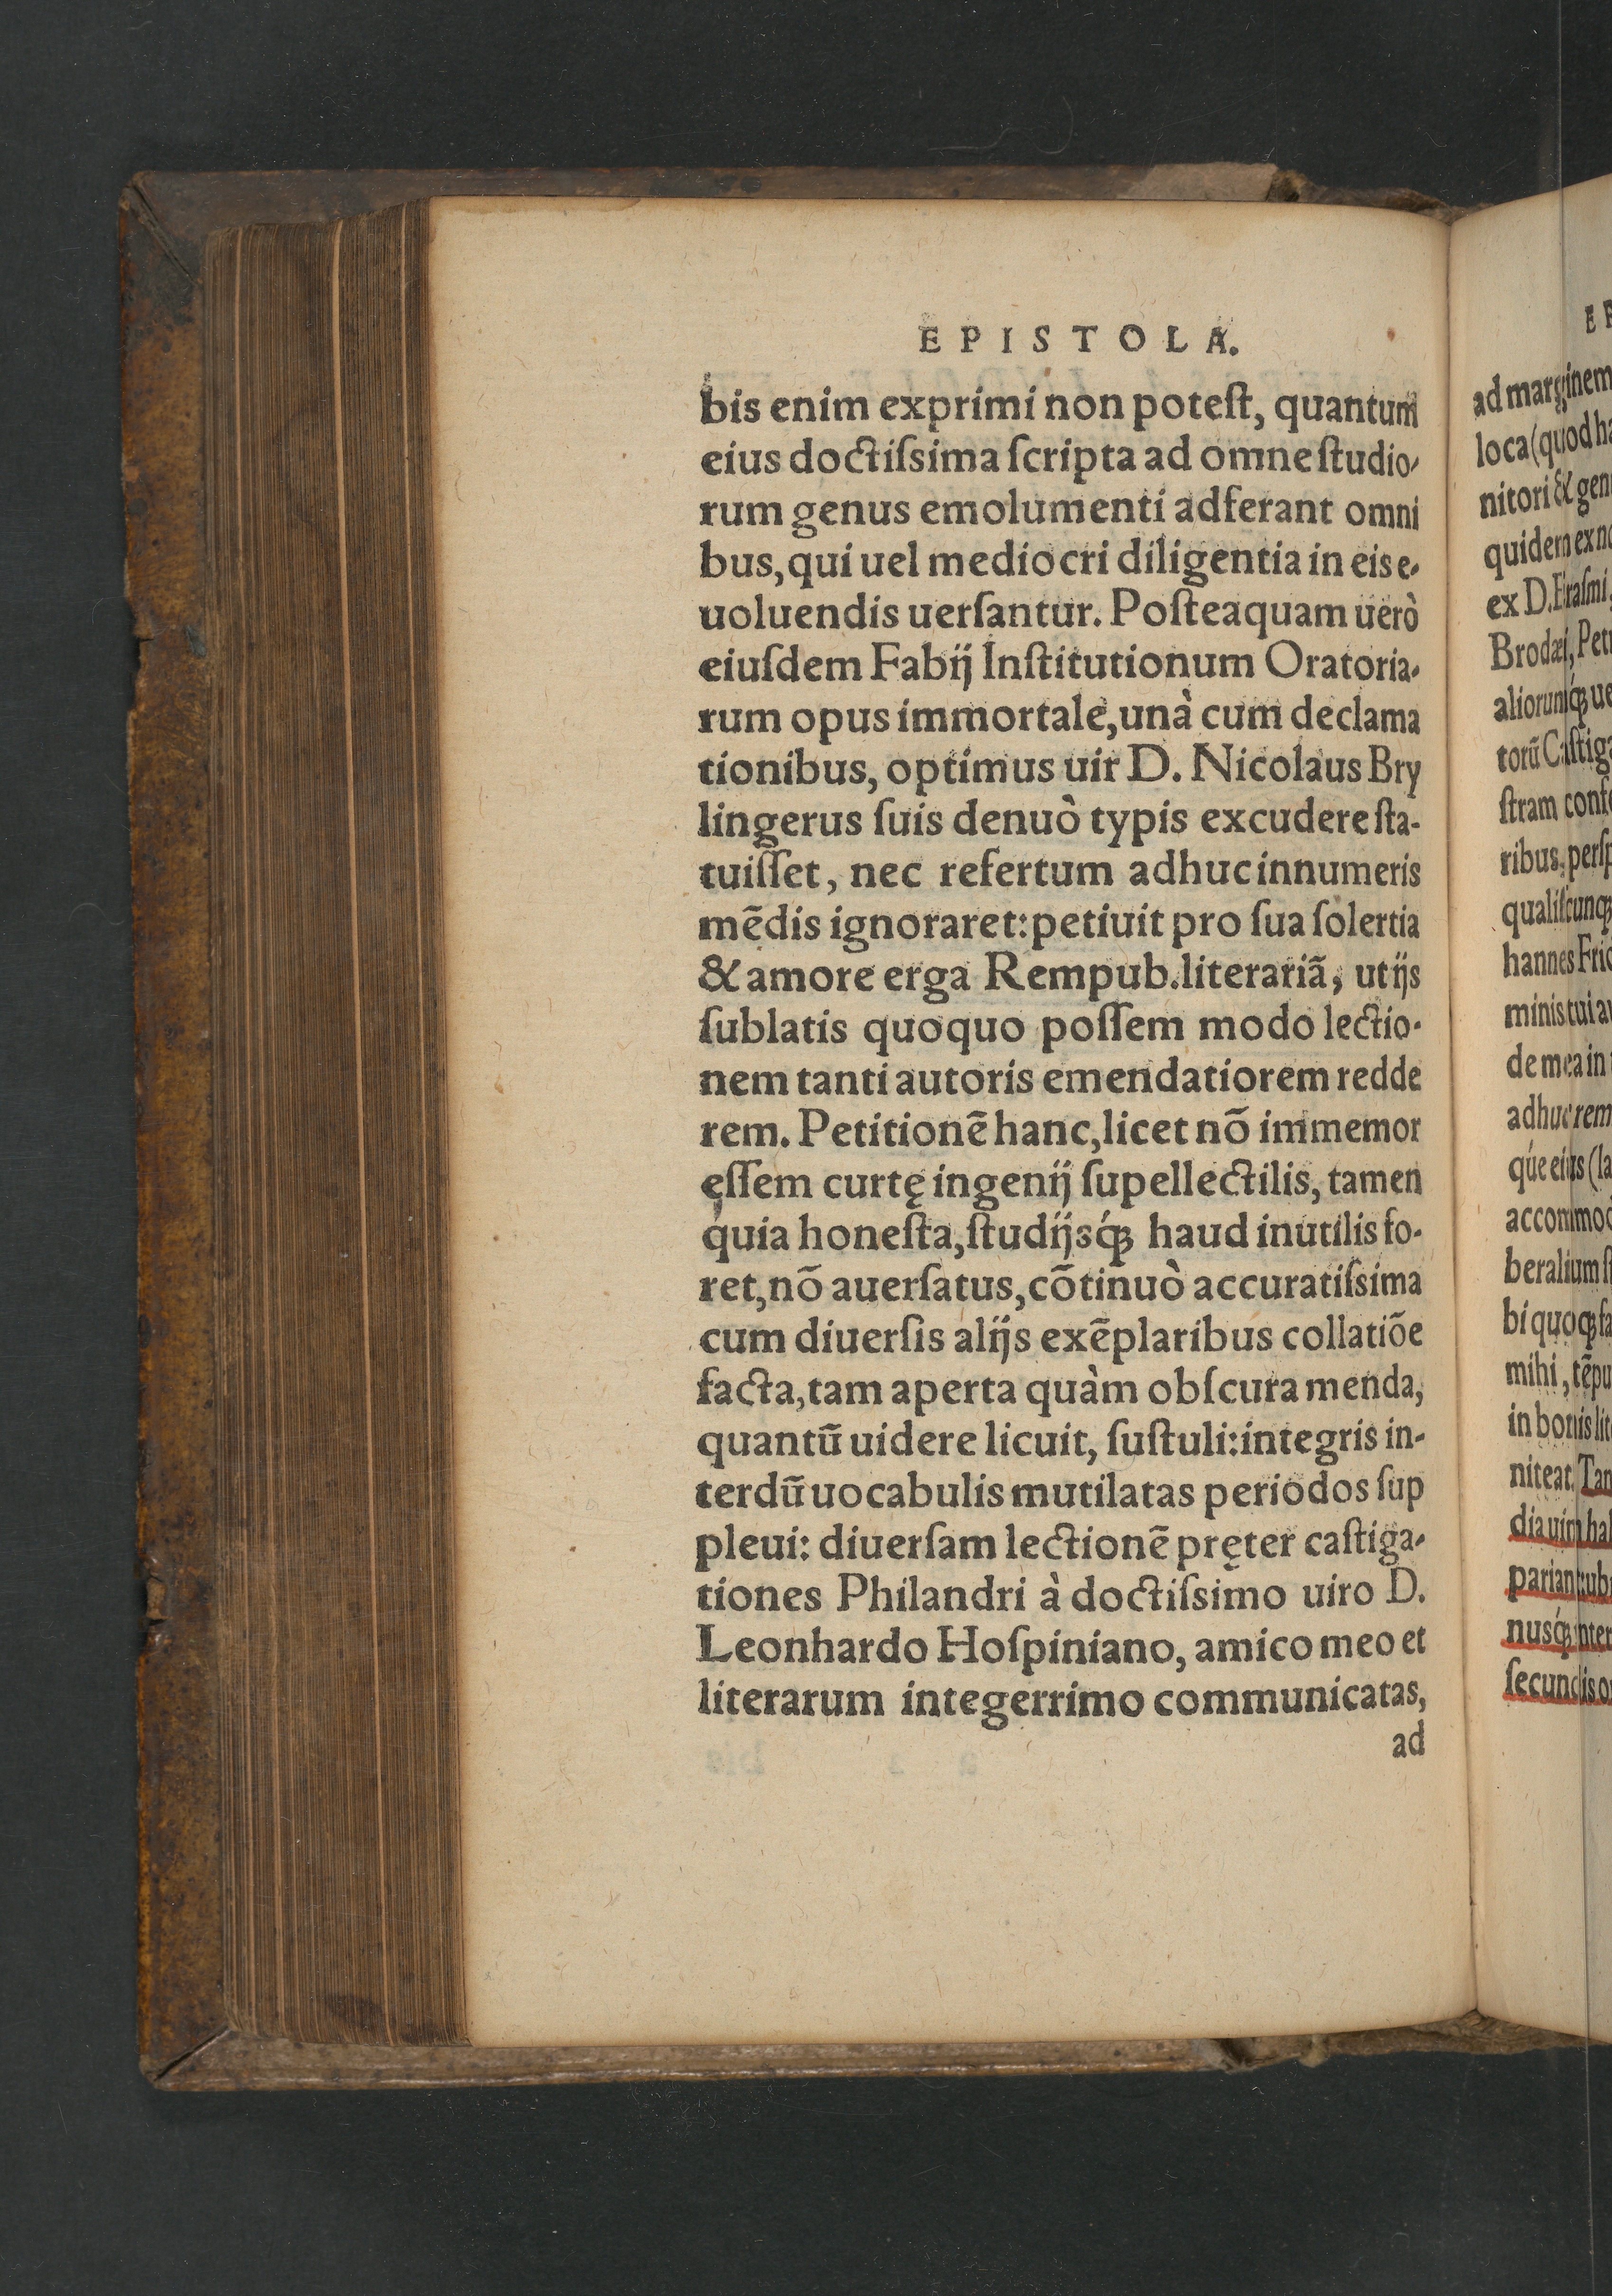 EPISTOLA.
bis enim exprimi non poteſt, quantum
eius doctiſsima ſcripta ad omne ſtudio-
rum genus emolumenti adferant omni
bus, qui uel mediocri diligentia in eis e-
uoluendis uerſantur. Poſteaquam uerò
eiuſdem Fabij Inſtitutionum Oratoria-
rum opus immortale, unà cum declama
tionibus, optimus uir D. Nicolaus Bry
lingerus ſuis denuò typis excudere ſta-
tuiſſet, nec refertum adhuc innumeris
mẽdis ignoraret: petiuit pro ſua ſolertia
& amore erga Rempub. literariã, ut ijs
ſublatis quoquo poſſem modo lectio-
nem tanti autoris emendatiorem redde
rem. Petitionẽ hanc, licet nõ immemor
eſſem curtę ingenij ſupellectilis, tamen
quia honeſta, ſtudijsq́ꝫ haud inutilis fo-
ret, nõ auerſatus, cõtinuò accuratiſsima
cum diuerſis alijs exẽplaribus collatiõe
facta, tam aperta quàm obſcura menda,
quantũ uidere licuit, ſuſtuli: integris in-
terdũ uocabulis mutilatas periodos ſup
pleui: diuerſam lectionẽ pręter caſtiga-
tiones Philandri à doctiſsimo uiro D.
Leonhardo Hoſpiniano, amico meo et
literarum integerrimo communicatas,
ad
E
ad marginem
loca (quod
nitori & gen
quidem ex
ex D. Eraſmi,
Brodæi, Pet
aliorumq́ꝫ
torũ Caſtig
ſtram conf
ribus, perſp
qualiſcunqꝫ
hannes Fri
minis tui
de mea in
adhuc rem
q́ue eius (la
accommo
beralium
bi quoqꝫ fa
mihi, tẽpu
in bonis lit
niteat. Tan
dia uim ha
pariant: ub
nusq́ꝫ inter
ſecundis o